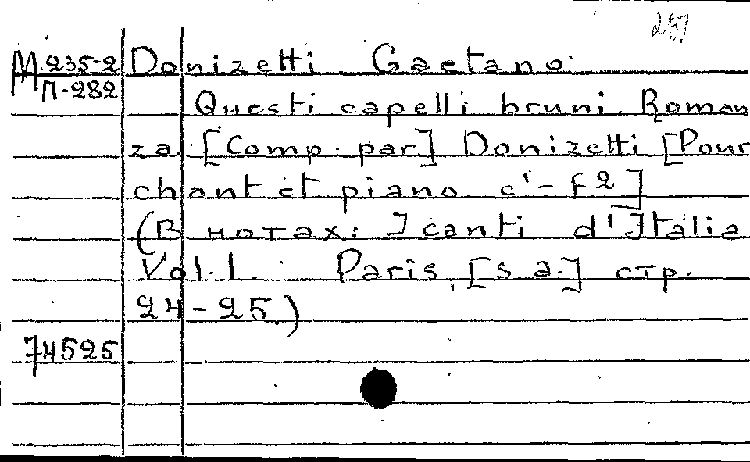 237
М 235-2 Donizetti Gaetano.
П-282
Questi capelli bruni. Roman
za. [Comp. par] Donizetti [Pour
chant et piano c'-f2]
(В нотах: I canti d'Italia
Vol. I. Paris, [s.a.] стр.
24-25.)
74525